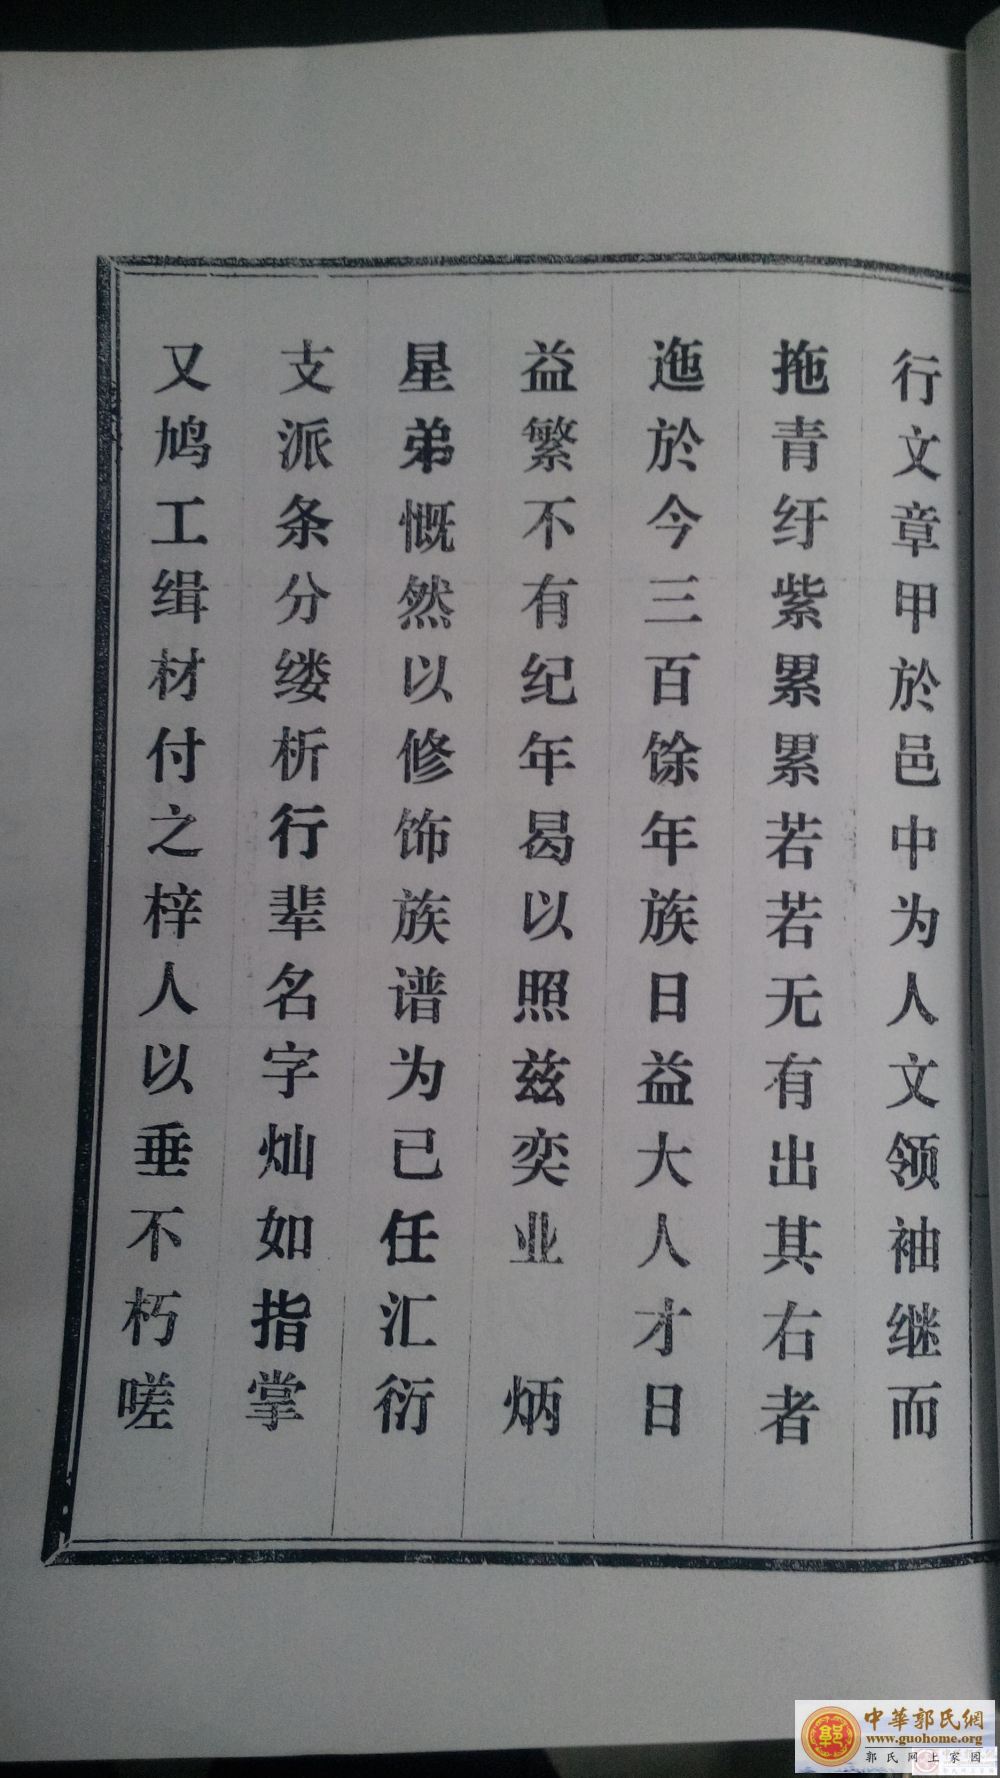 行文章甲於邑中为人文领袖继而
拖青纡紫累累若若无有出其右者
迤於今三百馀年族日益大人才日
益繁不有纪年曷以照兹奕业　炳
星弟慨然以修饰族谱为已任汇衍
支派条分缕析行辈名字灿如指掌
又鸠工缉材付之梓人以垂不朽嗟
中華郭氏網
www.guohome.org
郭氏网上家园